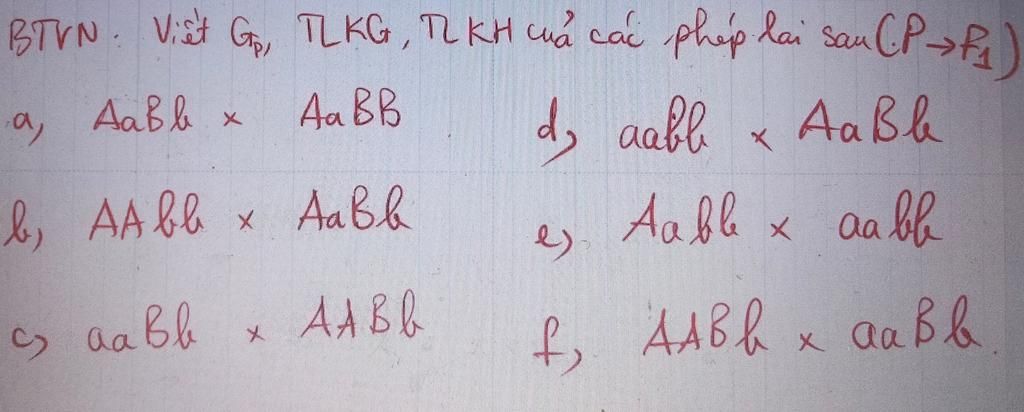 BTVN: Viết Gp, TLKG, TLKH cuả các phép lai sau (P→F1)
a, AaBb × AaBB
b, AAbb × AaBb
c, aaBb × AABb
d, aabb × AaBb
e, Aabb × aabb
f, AABb × aaBb.